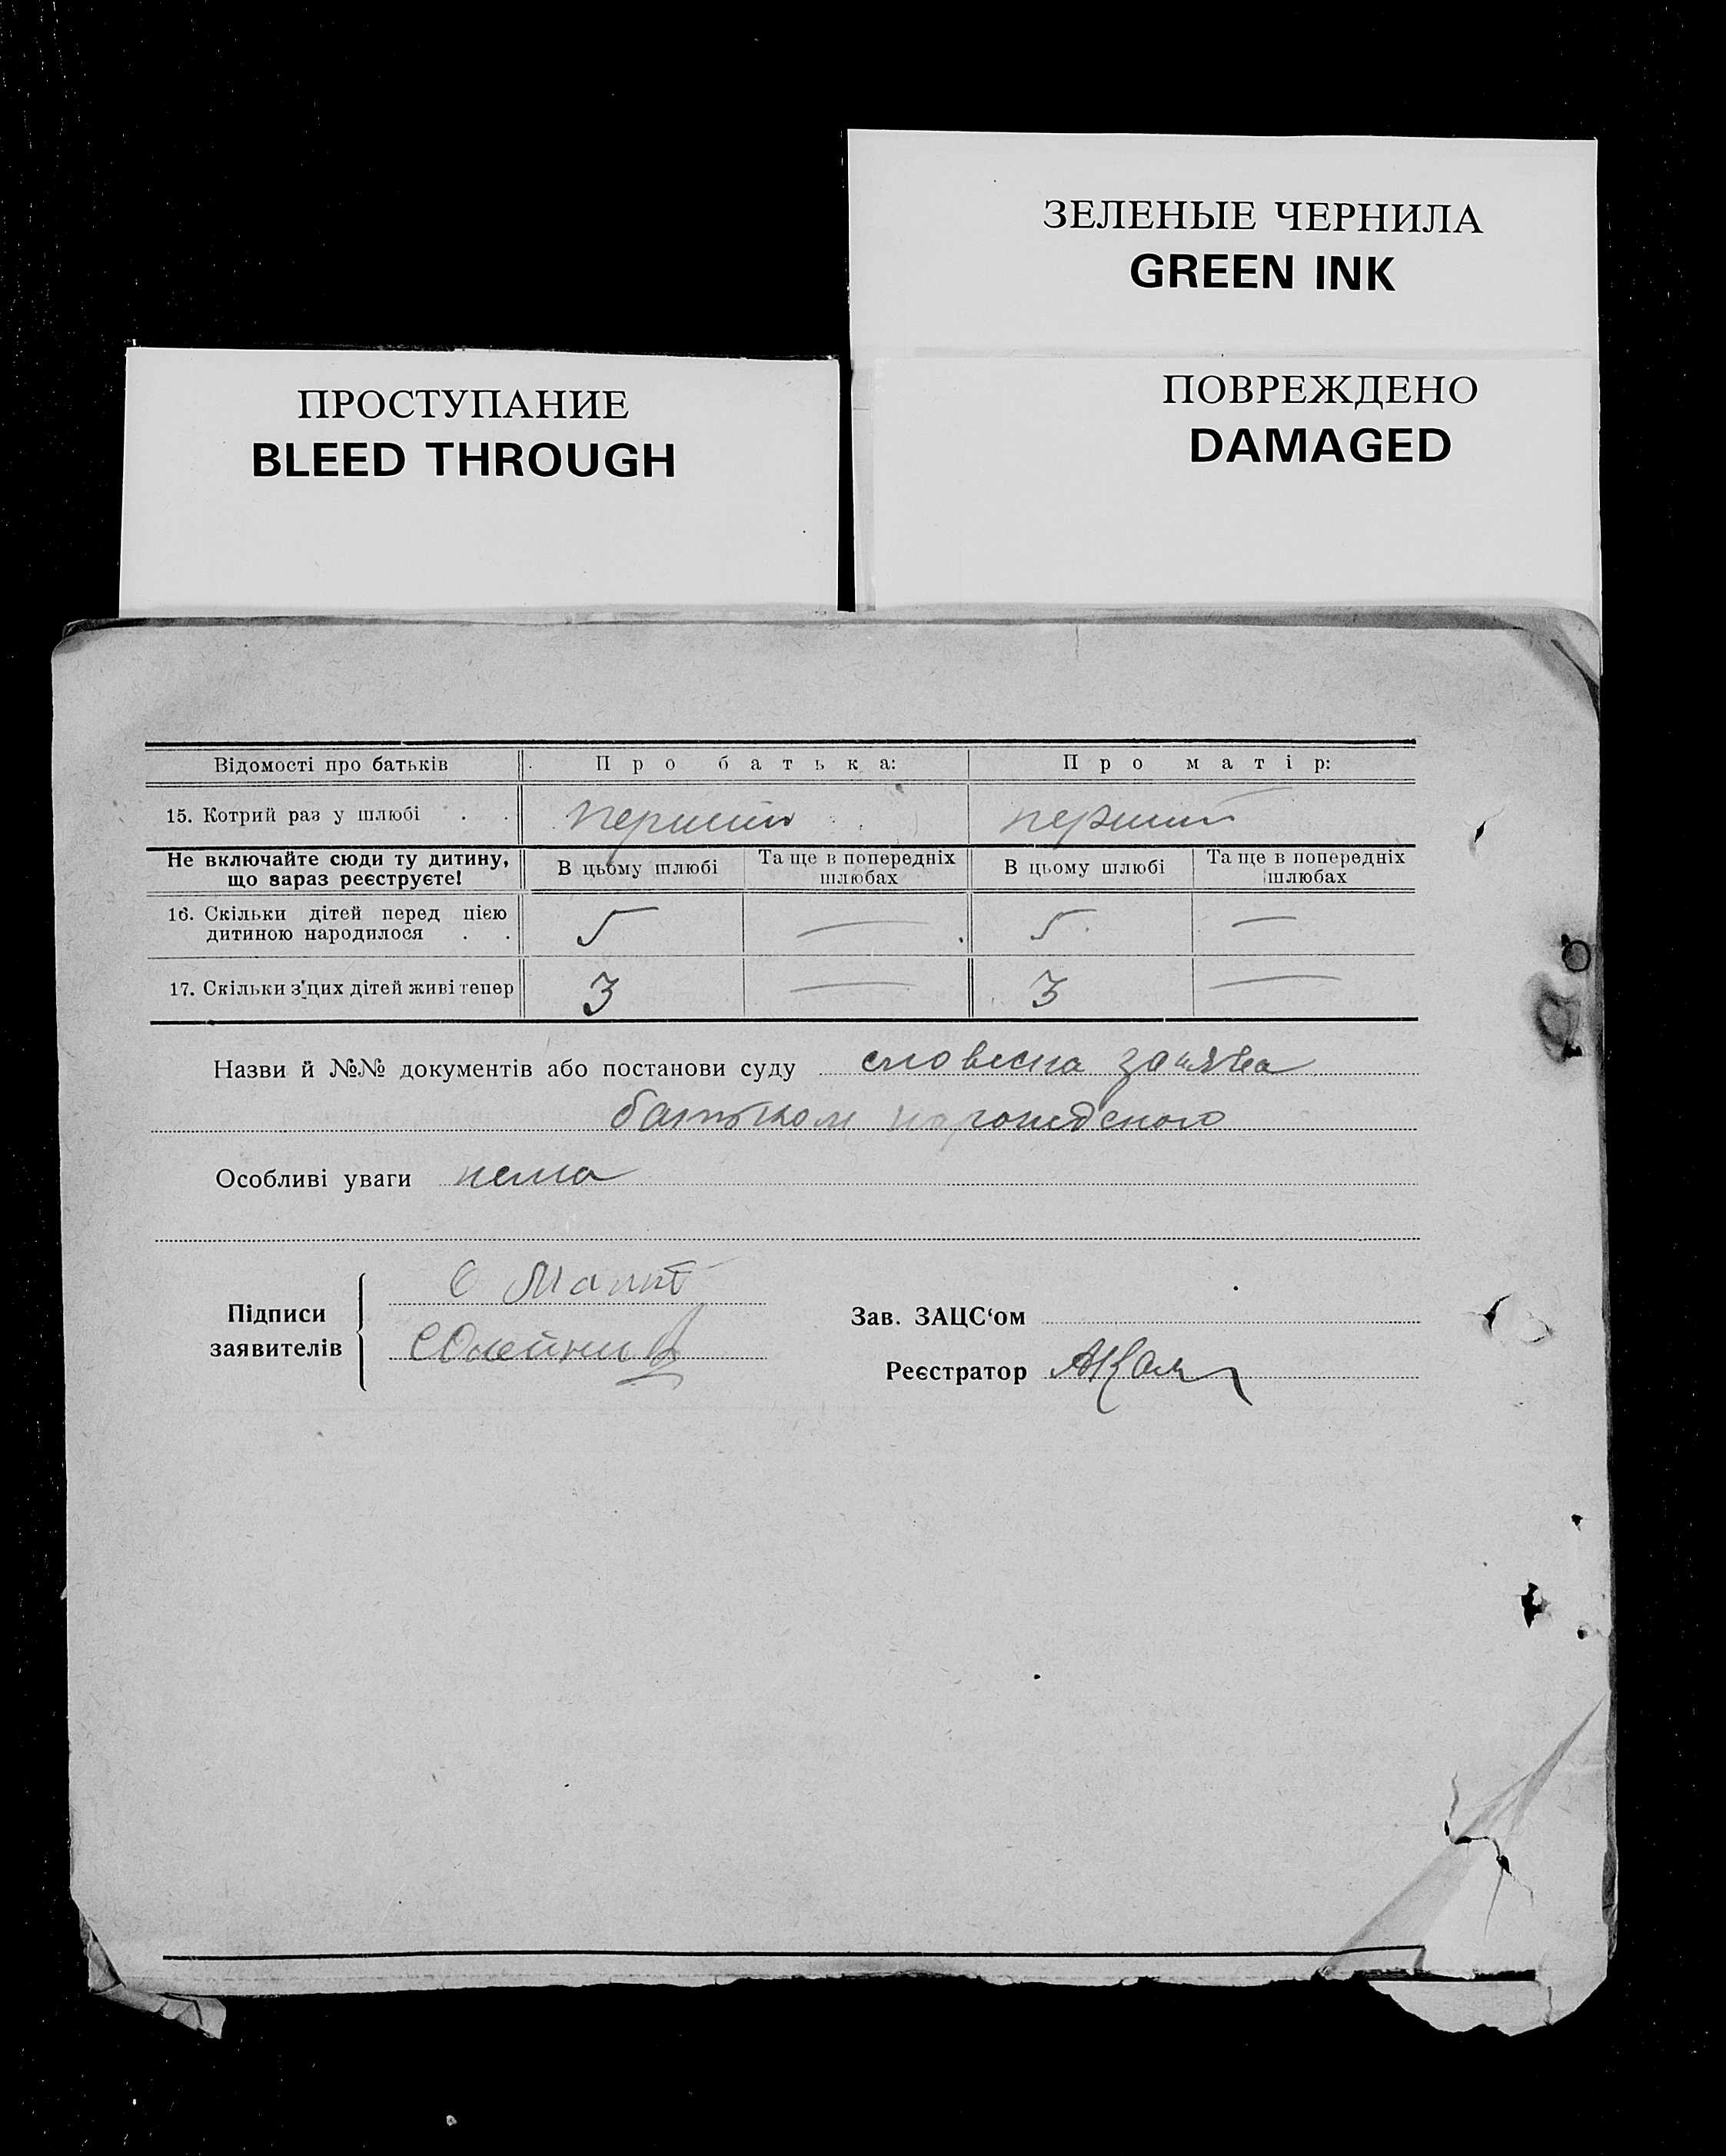 ЗЕЛЕНЫЕ ЧЕРНИЛА
GREEN INK
ПРОСТУПАНИЕ
BLEED THROUGH
ПОВРЕЖДЕНО
DAMAGED
Відомості про батьків Про батька: Про матір:
15. Котрий раз у шлюбі . . перший перший
Не включайте сюди ту дитину, що зараз реєструєте! В цьому шлюбі Та ще в попередніх шлюбах В цьому шлюбі Та ще в попередніх шлюбах
16. Скільки дітей перед цією дитиною народилося . . 5 — 5 —
17. Скільки з'цих дітей живі тепер 3 — 3 —
Назви й №№ документів або постанови суду словесна заява
батьком
Особливі уваги нема
Підписи заявителів
Олейник
Зав. ЗАЦС‘ом
Реєстратор